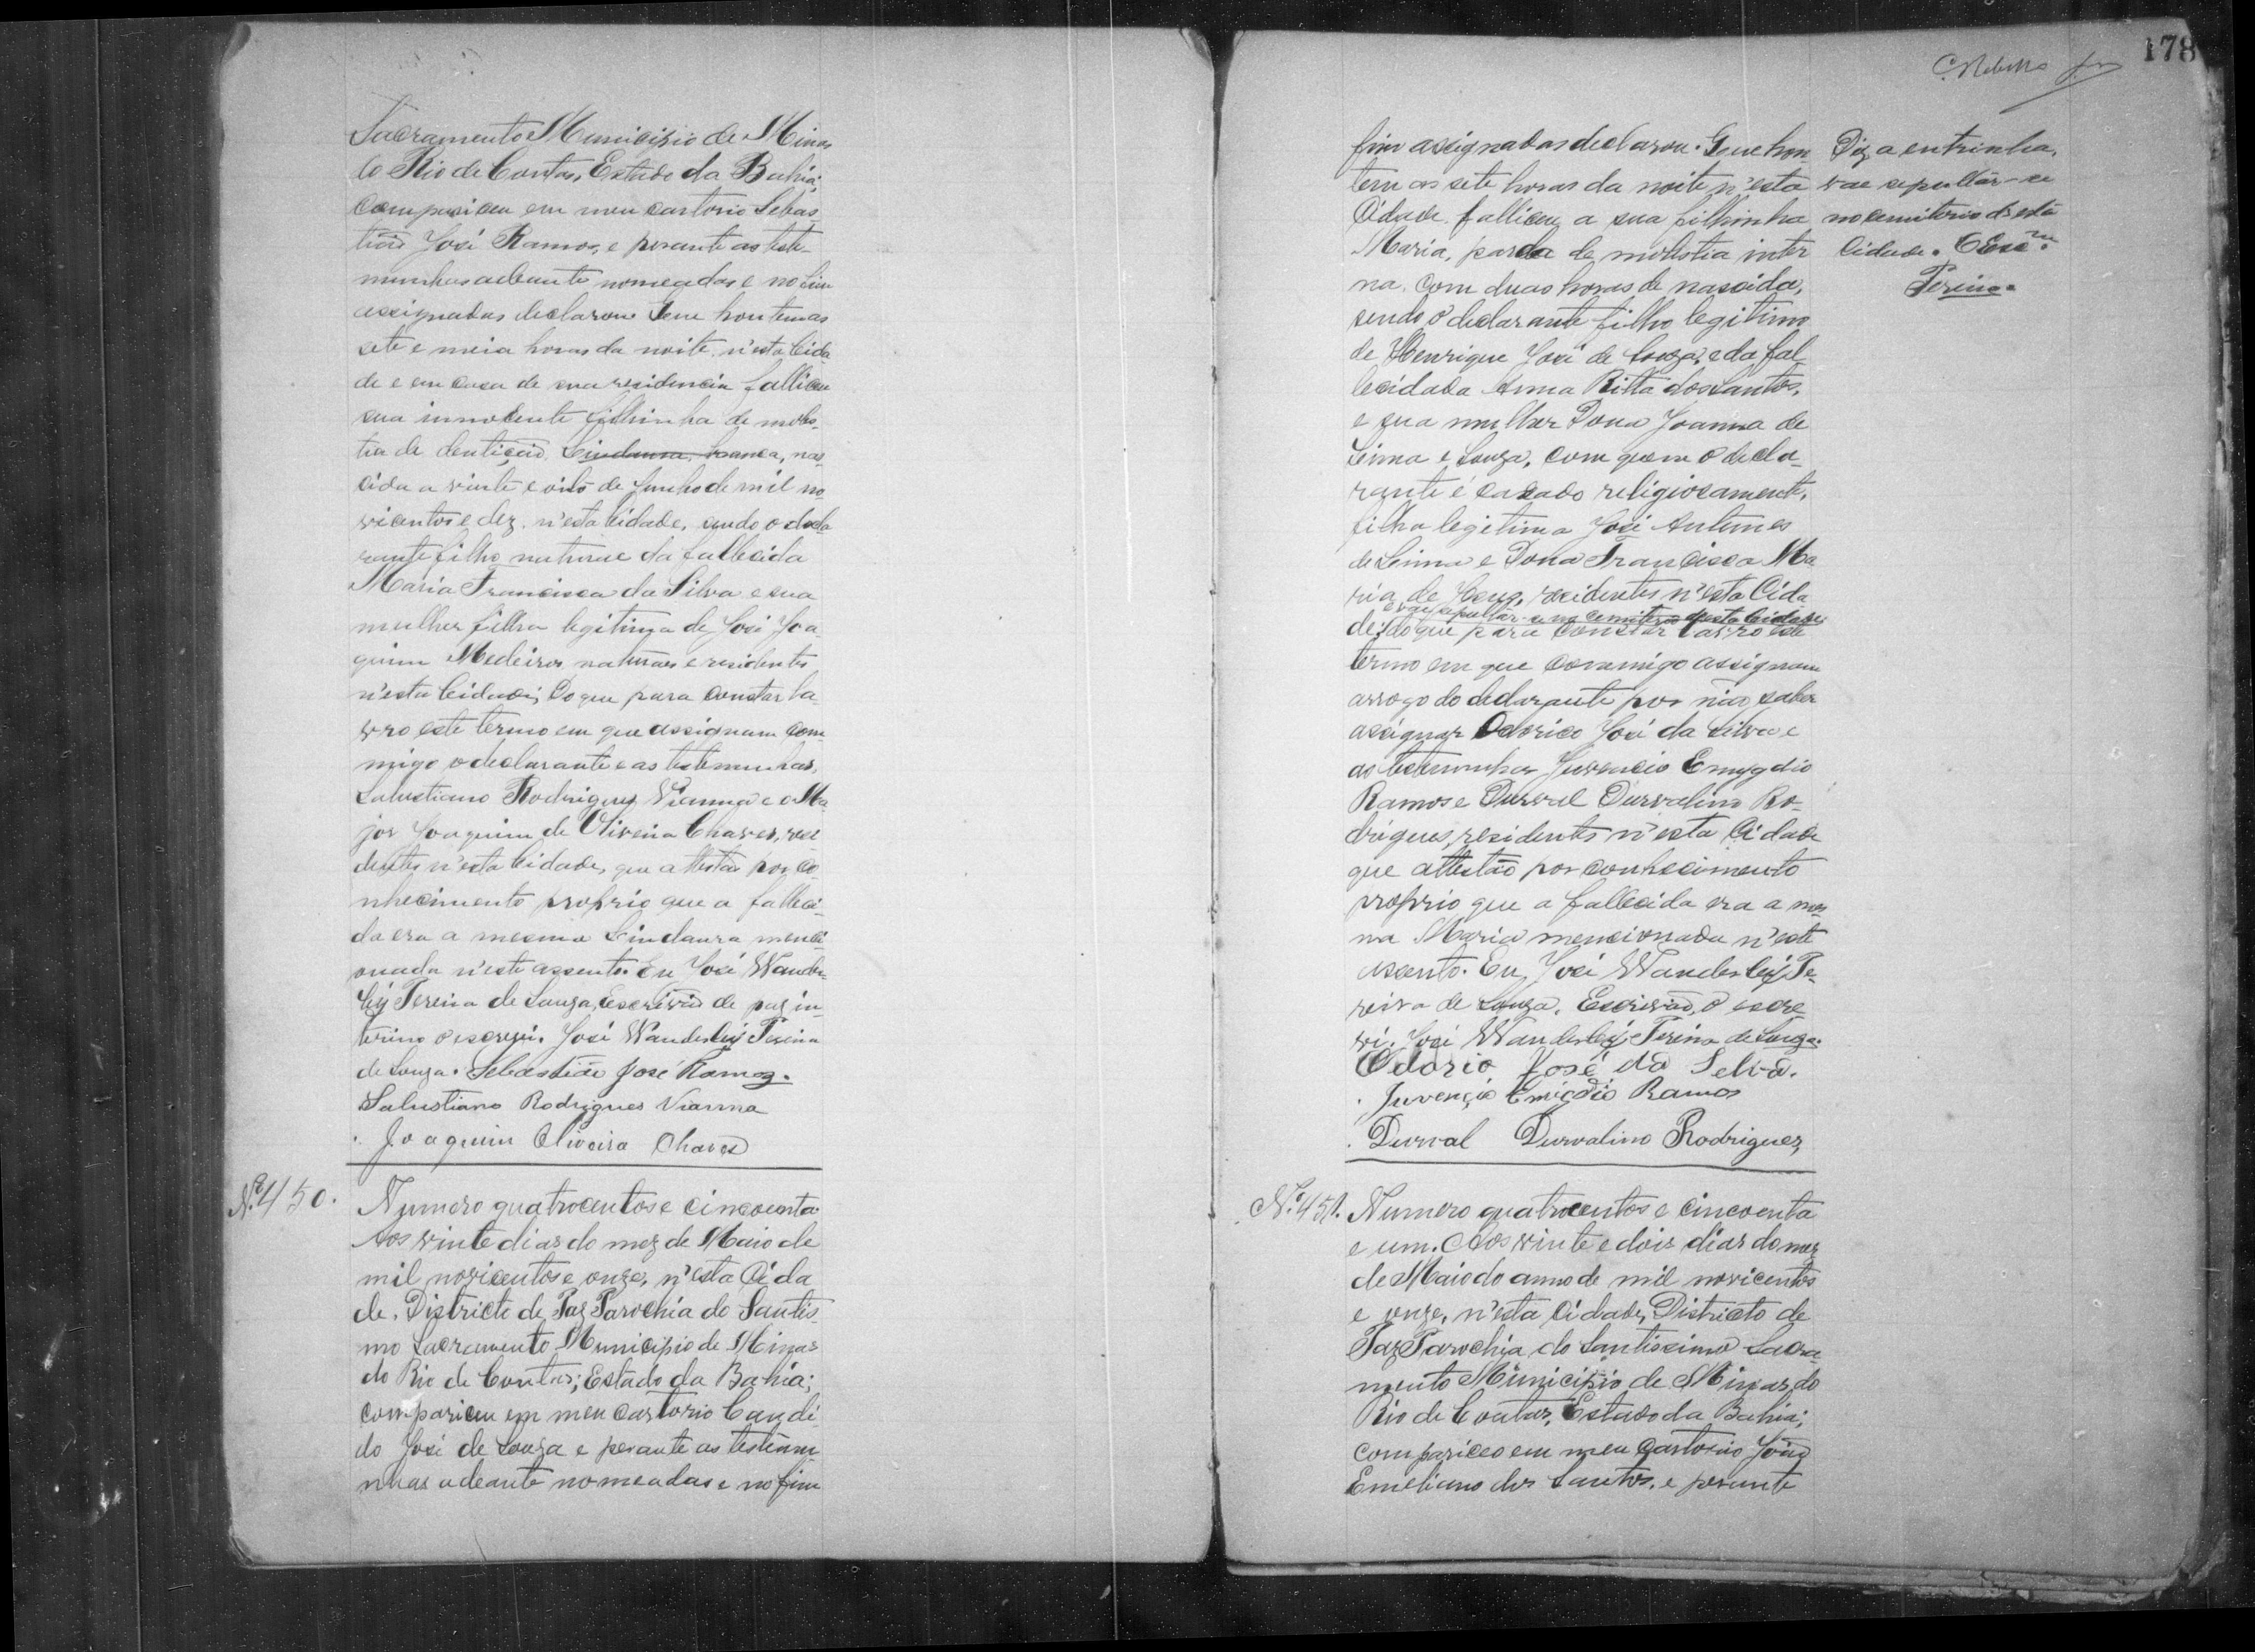 Sacramento Municipio de Minas
do Rio de Contas, Estado da Bahia;
compariceu em meu cartorio Sebas
tião José Ramos, e perante as teste-
munhas adeante nomeadas e no fim
assignadas declarou. Que hontem as
sete e meia horas da noite, n'esta Cida
de e em casa de sua residencia falliceu
sua innocente filhinha de moles-
tia de dentição, Lindaura, branca, nas-
cida a vinte e oito de Junho de mil no
vicentos e dez, n'esta Cidade, sendo o decla
rante filho natural da fallecida
Maria Francisca da Silva e sua
mulher filha legitima de José Joa-
quim Medeiros, naturaes e residentes
n'esta Cidade; Do que para constar la-
vro este termo em que assignam com-
migo o declarante e as testemunhas,
Salustiano Rodrigues Vianna e o Ma
jor Joaquim de Oliveira Chaves, resi
dentes n'esta Cidade, que attestão por co-
nhecimento proprio que a falleci-
da era a mesma Lindaura menci-
onada n'este assento. Eu José Wander
ley Pereira de Souza, escrivão de paz in-
terino o escrevi. José Wanderley Pereira
de Souza. Sebastião José Ramos.
Salustiano Rodrigues Vianna
Joaquim Oliveira Chaves
Nº 450.
Numero quatrocentos e cincoenta.
Aos vinte dias do mez de Maio de
mil novicentos e onze, n'esta Cida
de, Districto de Paz Parochia do Santis-
mo Sacramento Municipio de Minas
do Rio de Contas; Estado da Bahia;
compariceu em meu cartorio Candi-
do José de Souza e perante as testemu
nhas adeante nomeadas e no fim
178
fim assignadas declarou. Que hon-
tem as sete horas da noite n'esta
Cidade falliceu a sua filhinha
Maria, parda de molestia inter
na, com duas horas de nascida,
sendo o declarante filho legitimo
de Henrique José de Souza, e da fal
lecidada Anna Ritta dos Santos,
e sua mulher Dona Joanna de
Lima e Souza, com quem o decla-
rante é casado religiosamente,
filha legitima José Antunes
de Lima e Dona Francisca Ma
ria de Jesus, residentes n'esta Cida
e vae sepultar-se no cemiterio desta Cidade
de: do que para constar lavro este
termo em que commigo assignam
arrogo do declarante por não saber
assignar Odorico José da Silva e
as testemunhas Juvencio Emygdio
Ramos e Durval Durvalino Ro-
drigues, residentes n'esta Cidade
que attestão por conhecimento
proprio que a fallecida era a mes
ma Maria mencionada n'este
assento. Eu, José Wanderley Pe-
reira de Souza, Escrivão, o escre
vi. José Wanderley Pereira de Souza.
Odorio José da Selva.
Juvençio Emigdio Ramos
Durval Durvalino Rodrigues
Diz a entrinha,
vae sepultar-se
no cemiterio d'esta
Cidade. O Escm.
Pereira.
Nº 451.
Numero quatrocentos e cincoenta
e um. Aos vinte e dois dias do mez
de Maio do anno de mil novicentos
e onze, n'esta Cidade, Districto de
Paz Parochia do Santissimo Sacra-
mento Municipio de Minas do
Rio de Contas, Estado da Bahia;
compariceo em meu cartorio João
Emeliano dos Santos, e perante